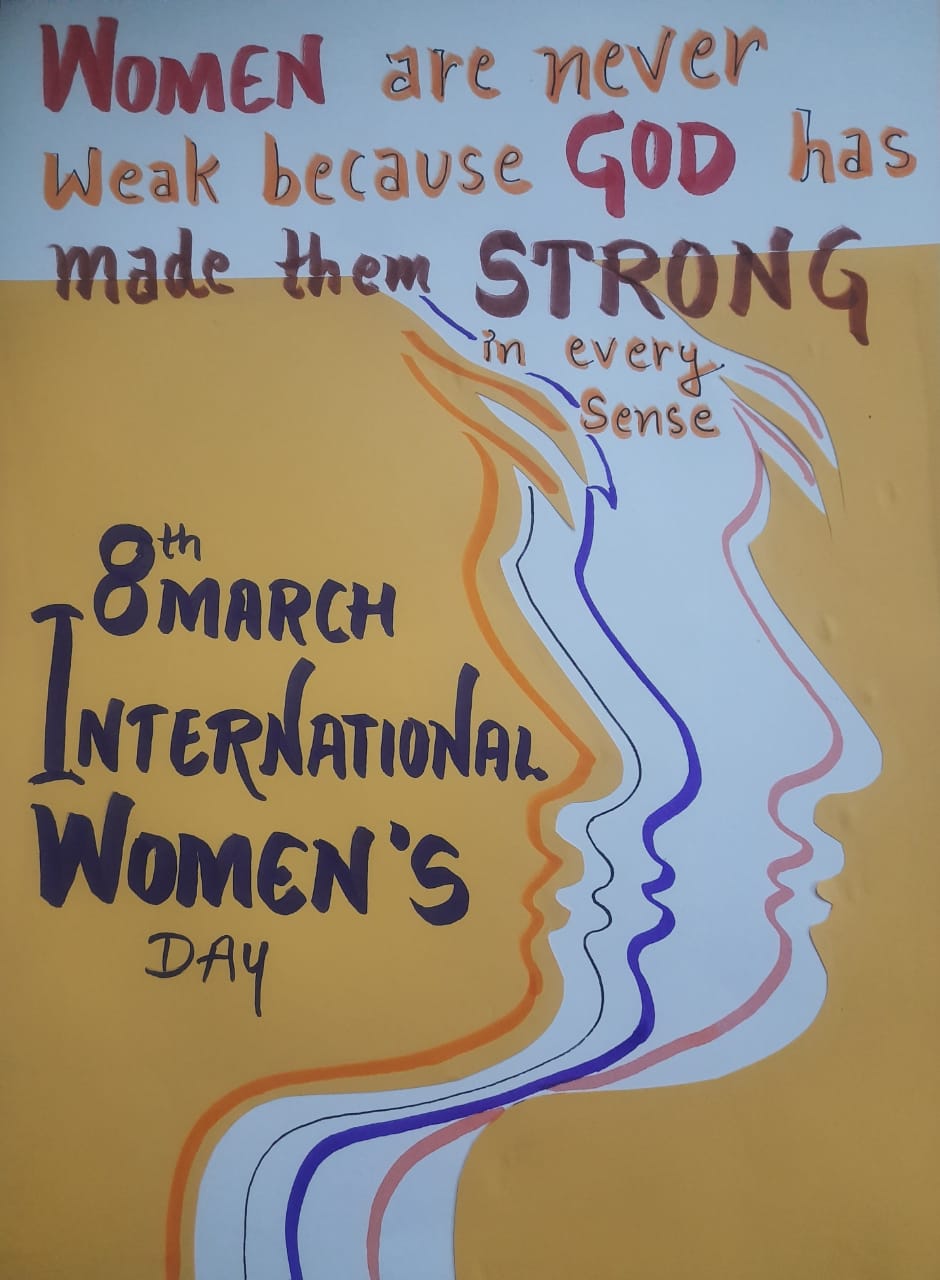 WOMEN are never
Weak because GOD has
made them STRONG
in every
Sense
8th MARCH
INTERNATIONAL
WOMEN'S
DAY